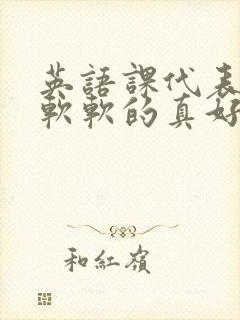 英語課代表
軟軟的真好
和紅嶺